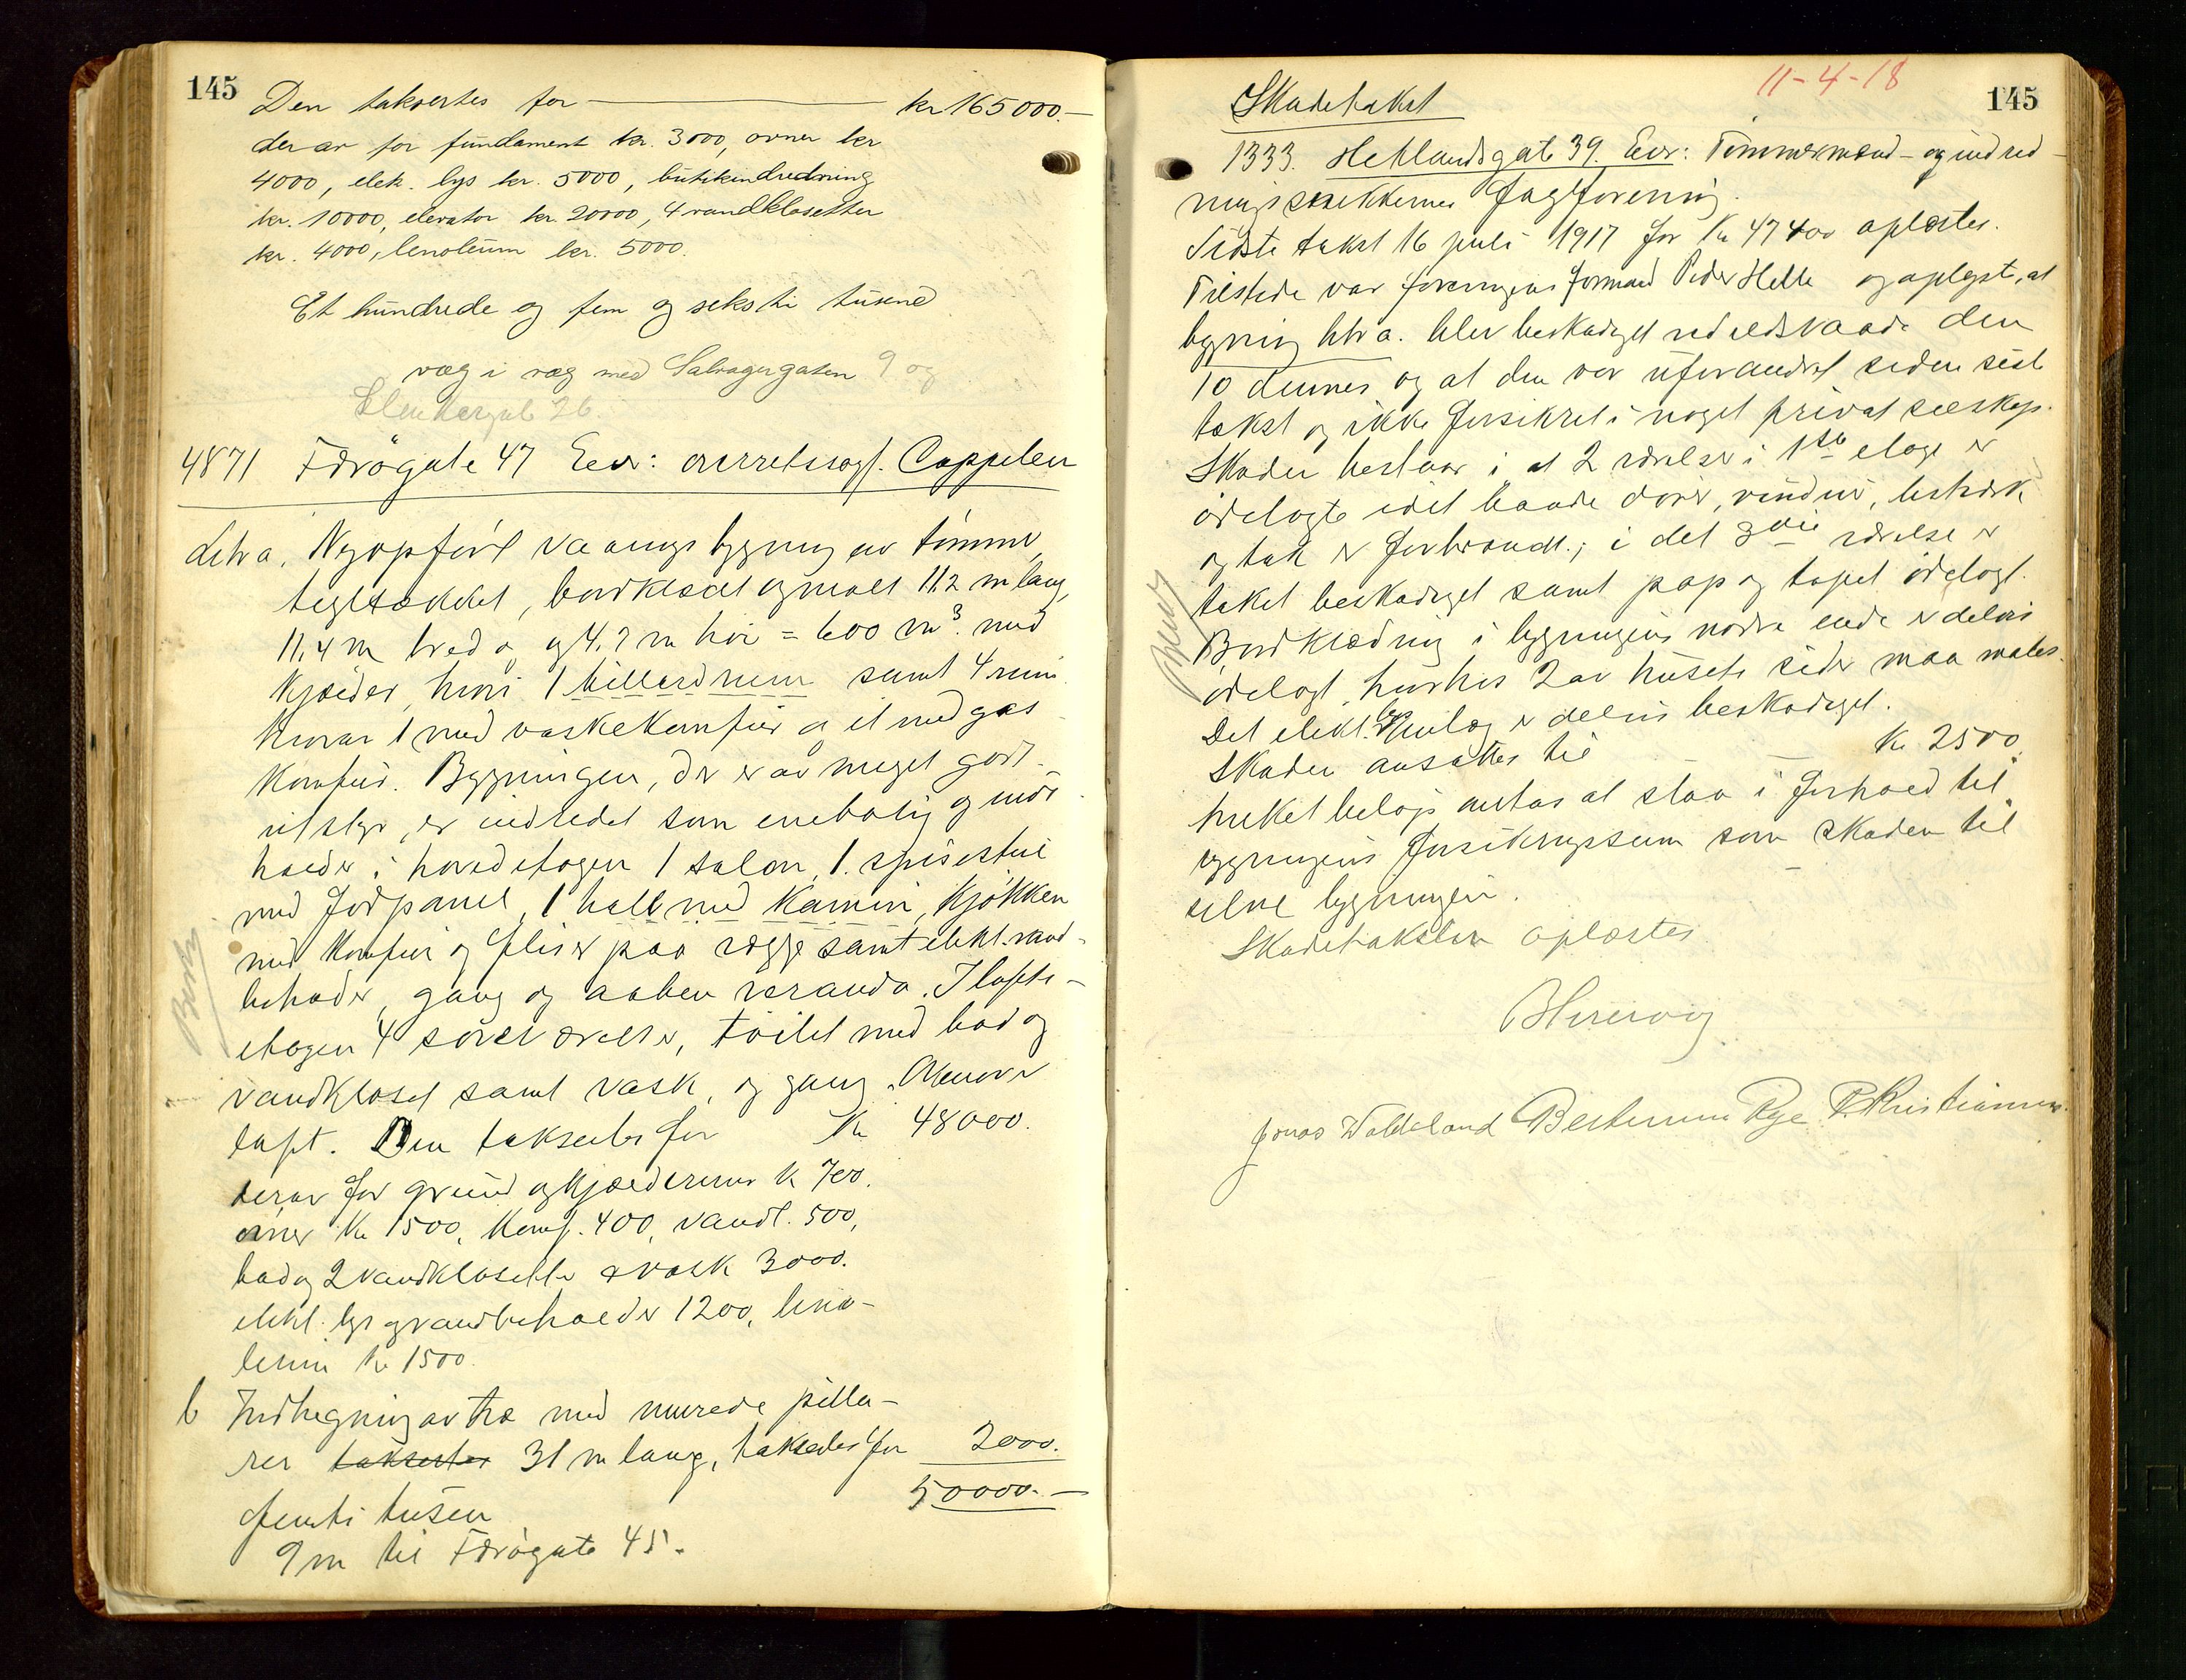 145
Den takseres for — kr 165000.—
derav for fundament kr. 3000, ovner kr
4000, elek. lys kr. 5000, butikindredning
kr. 10000, elevator kr. 20000, 4 vandklosetter
kr. 4000, linoleum kr. 5000.
Et hundrede og fem og seksti tusend
væg i væg med Salvagergaten 9 og
26.
4871 Færøgate 47 Eier: overretssagf. Cappelen
Litr a. Nyopført vaaningsbygning av tømmer,
tegltækket, bordklædt og malt 11.2 m lang,
11.4 m bred og 4.7 m høi = 600 m³. med
kjælder, hvori 1 billardrum samt 4 rum
hvorav 1 med vaskekomfur og et med gas
komfur. Bygningen, der er av meget godt
utstyr, er indredet som enebolig og inde
holder i hovedetagen 1 salon, 1. spisestue
med høi panel, 1 hall med kamin, kjøkken
med komfur og fliser paa vægge samt elekt. vand-
beholder, gang og aaben veranda. I lofts-
etagen 4 soveværelser, toilet med bad og
vandkloset samt vask, og gang. Ovenover
loft. Den takseres for Kr 48000.
derav for grund og kjælderrum kr 700.
ovner Kr 1500, komf. 400, vandl. 500,
bad og 2 vandklosetter & vask 3000.
elekt. lys og vandbeholder 1200, lino-
leum kr 1500.
b Indhegning av træ med murede pilla-
rer takseres 31 m lang, takseres for 2000.
50000.—
femti tusen
9 m til Færøgate 45.
11-4-18
145
Skadetakst
1333. Hetlandsgate 39. Eier: Tømmermænd- og indred-
nings snekkernes Fagforening.
Sidste takst 16 juli 1917 for Kr 47400 oplæstes.
Tilstede var foreningens formand Peder Helle og oplyste, at
bygning litr a. blev beskadiget ved ildsvaade den
10 dennes og at den var uforandret siden sidste
takst og ikke forsikret i noget privat selskap.
Skaden bestaar i at 2 værelser i 1ste etage er
ødelagte idet baade dører, vinduer, listverk
og tak er forbrændt; i det 3die værelse er
taket beskadiget samt pap og tapet ødelagt.
Bordklædning i bygningens nordre ende er delvis
ødelagt, hvorhos 2 av husets sider maa males.
Det elekt. lysanlæg er delvis beskadiget.
Skaden ansættes til — Kr 2500
hvilket beløp antas at staa i forhold til
bygningens forsikringssum som skaden til
selve bygningen.
Skadetaksten oplæstes
Jonas Waldeland Bertinius Rye P. Kristiansen